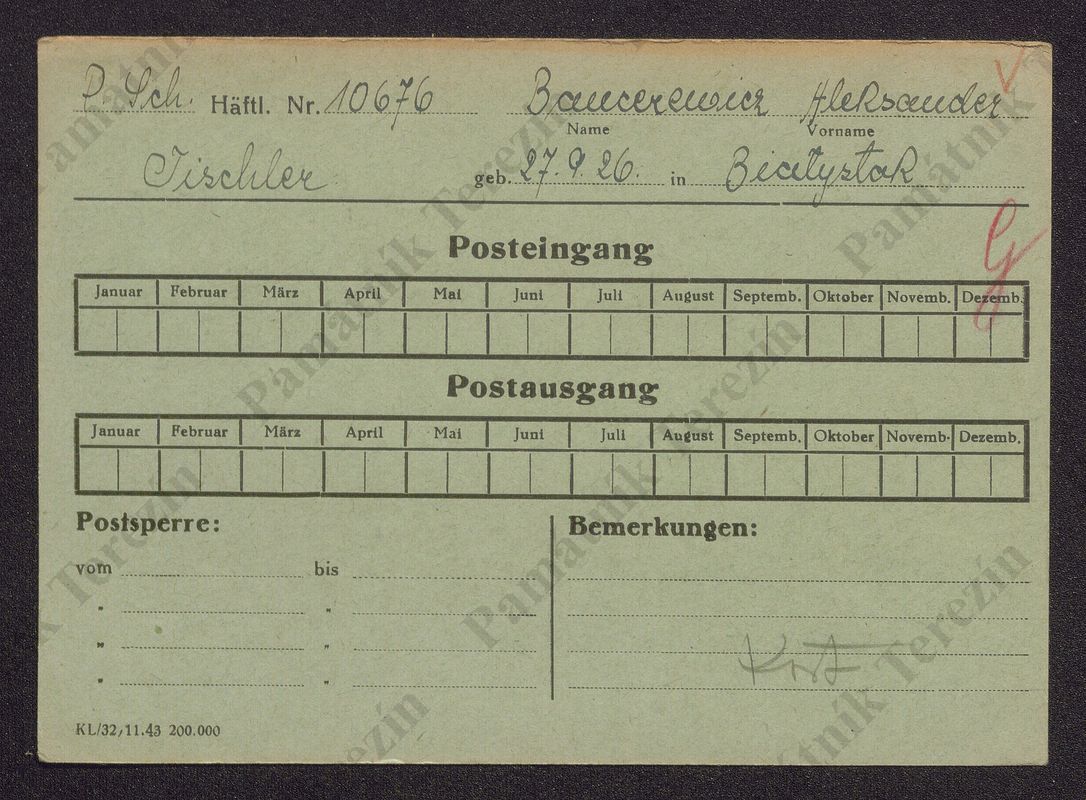 P. Sch. Häftl. Nr. 10676 Bancerewicz Aleksander
Name Vorname
Tischler geb. 27.9.26. in Białystok
G
Posteingang
Januar Februar März April Mai Juni Juli August Septemb. Oktober Novemb. Dezemb.
Postausgang
Januar Februar März April Mai Juni Juli August Septemb. Oktober Novemb. Dezemb.
Postsperre: Bemerkungen:
vom bis
" "
" "
" "
KL/32/11.43 200.000
Památník Terezín